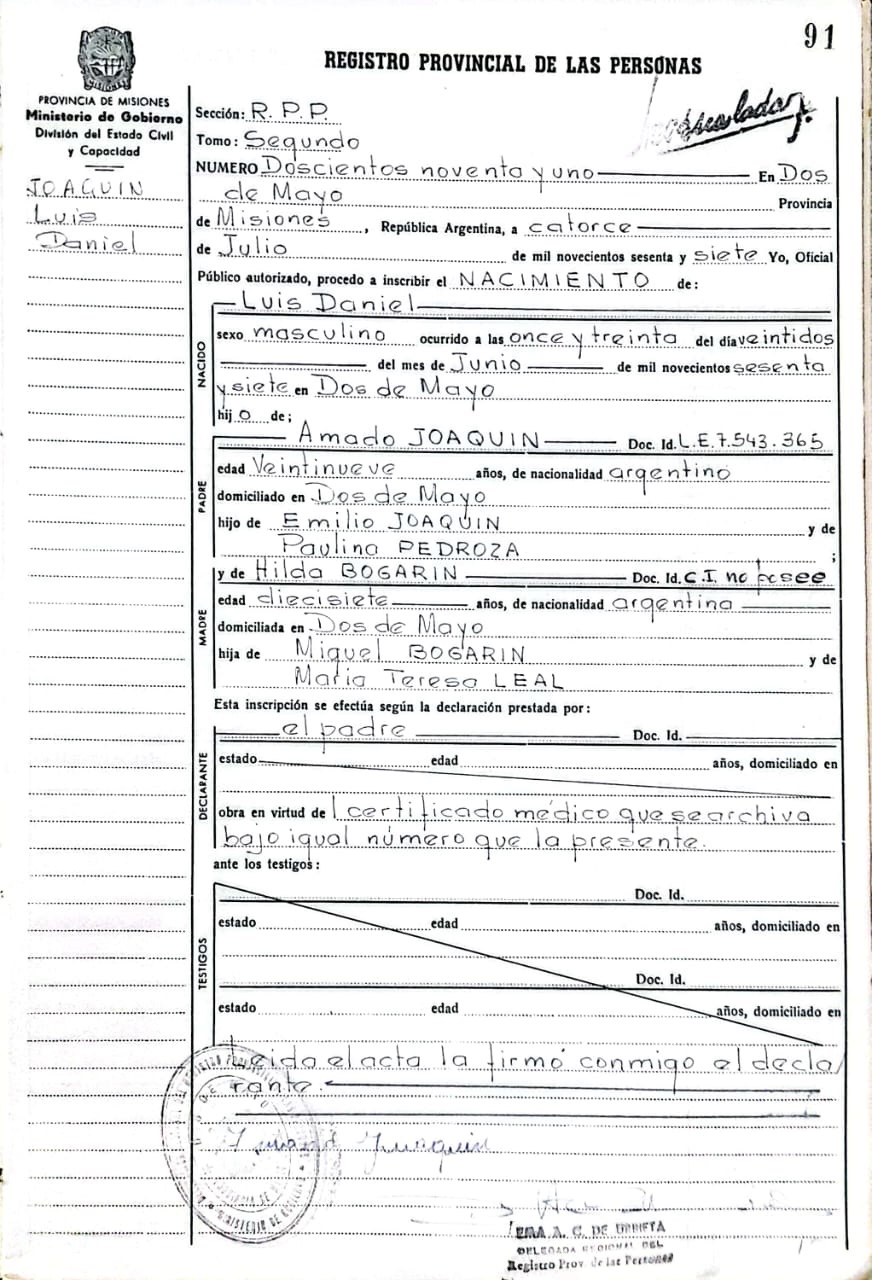 91
REGISTRO PROVINCIAL DE LAS PERSONAS
PROVINCIA DE MISIONES
Ministerio de Gobierno
División del Estado Civil
y Capacidad
JOAQUIN
Luis
Daniel
Sección: R. P. P.
Tomo: Segundo
NUMERO Doscientos noventa y uno En Dos
de Mayo Provincia
de Misiones, República Argentina, a catorce
de Julio de mil novecientos sesenta y siete Yo, Oficial
Público autorizado, procedo a inscribir el NACIMIENTO de:
NACIDO
Luis Daniel
sexo masculino ocurrido a las once y treinta del día veintidos
del mes de Junio de mil novecientos sesenta
y siete en Dos de Mayo
hijo de;
PADRE
Amado JOAQUIN Doc. Id. L.E. 7.543.365
edad Veintinueve años, de nacionalidad argentino
domiciliado en Dos de Mayo
hijo de Emilio JOAQUIN y de
Paulina PEDROZA ;
MADRE
y de Hilda BOGARIN Doc. Id. C.I. no posee
edad diecisiete años, de nacionalidad argentina
domiciliada en Dos de Mayo
hija de Miguel BOGARIN y de
Maria Teresa LEAL
Esta inscripción se efectúa según la declaración prestada por:
DECLARANTE
el padre Doc. Id.
estado edad años, domiciliado en
obra en virtud de l certificado médico que se archiva
bajo igual número que la presente.
ante los testigos:
TESTIGOS
Doc. Id.
estado edad años, domiciliado en
Doc. Id.
estado edad años, domiciliado en
Leida el acta la firmó conmigo el decla
rante.
Joaquin
A. C. DE URRIETA
DELEGADA REGIONAL DEL
Registro Prov. de las Personas